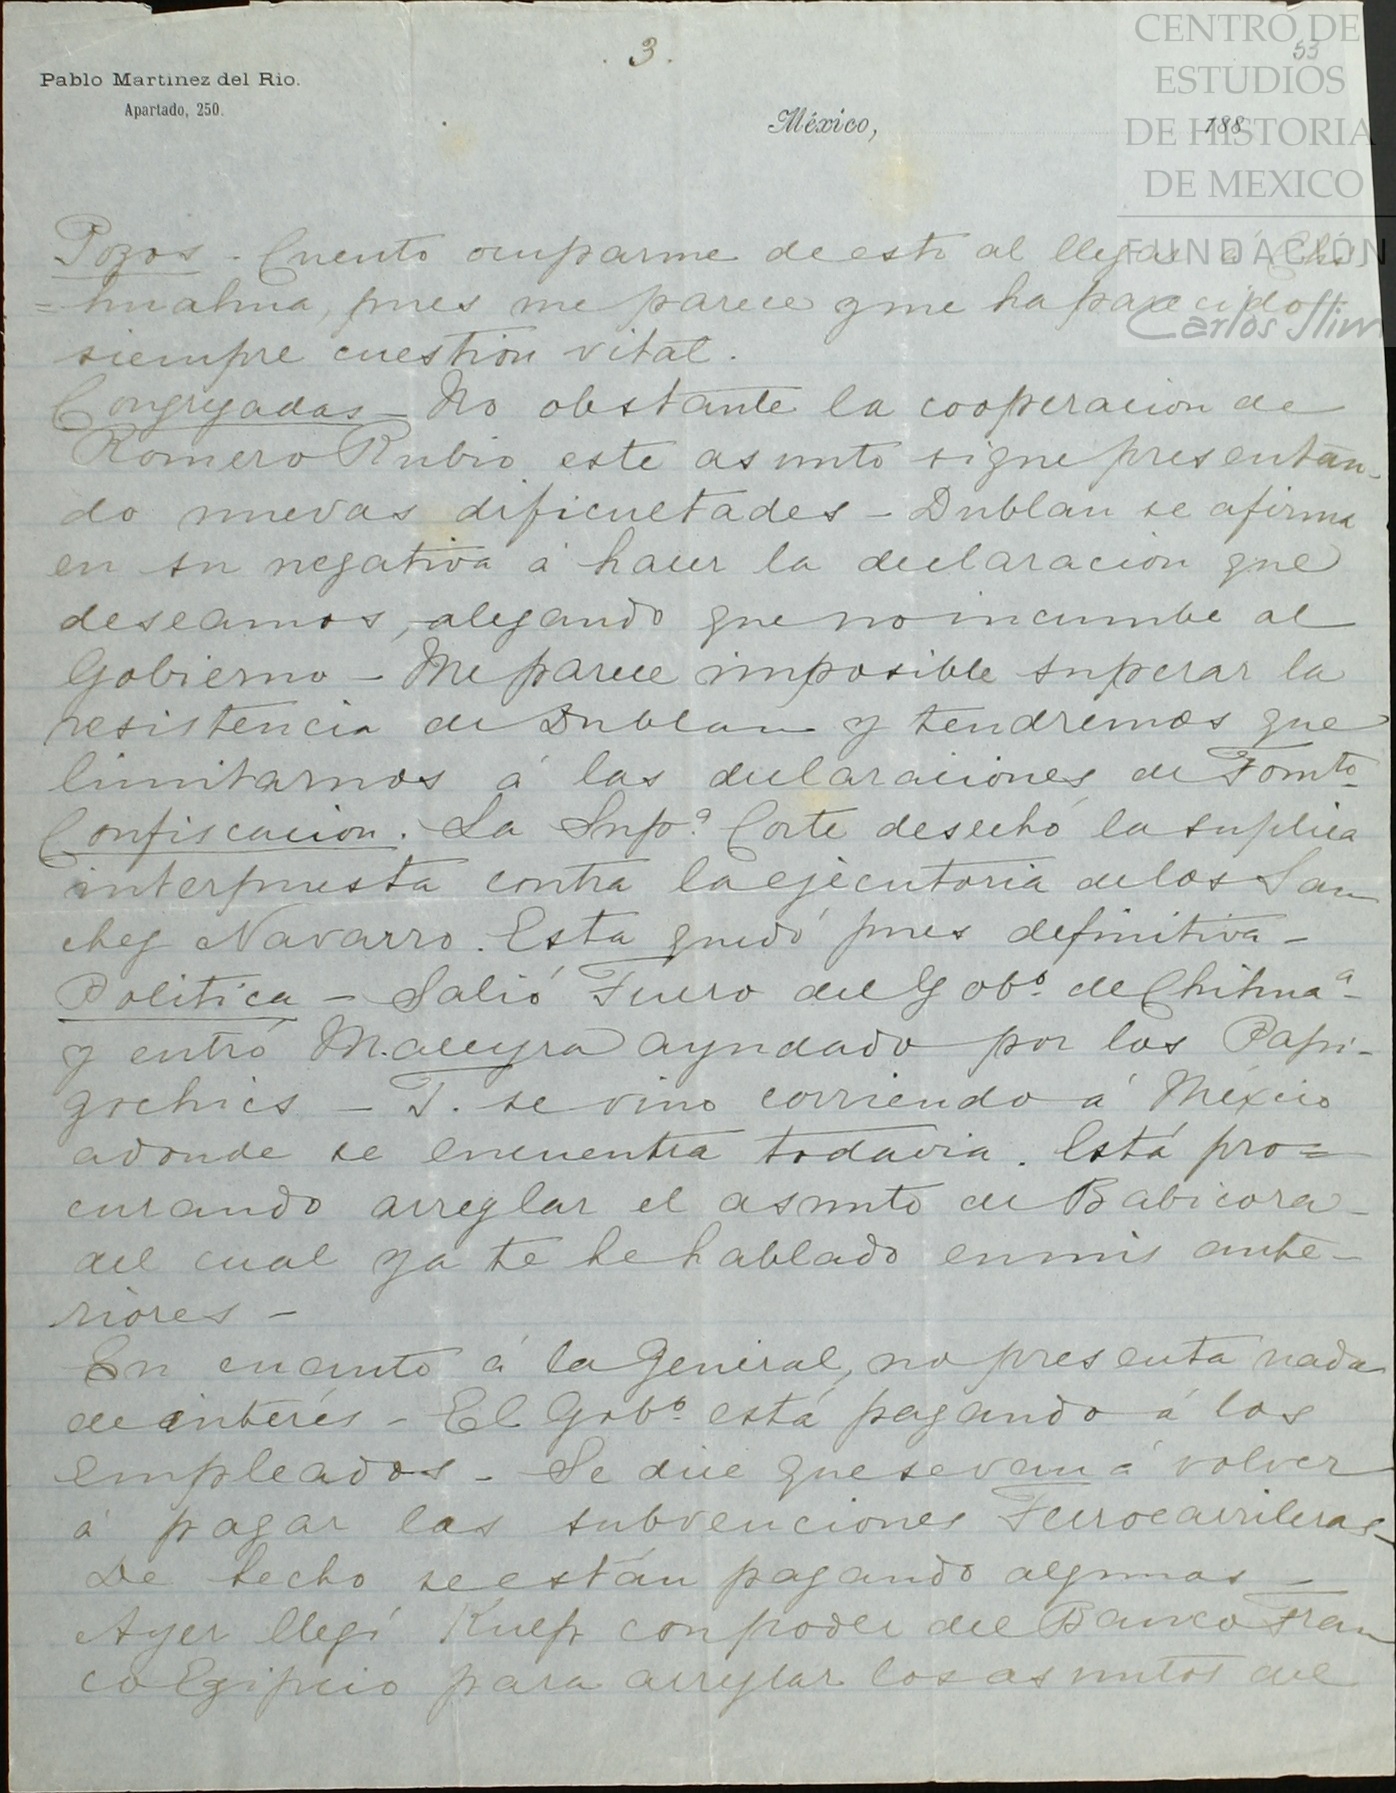 3.
53
Pablo Martinez del Rio.
Apartado, 250.
México, 188
CENTRO DE
ESTUDIOS
DE HISTORIA
DE MEXICO
FUNDACIÓN
Carlos Slim
Pozos. Cuento ocuparme de esto al llegar á Chi
=huahua, pues me parece y me ha parecido
siempre cuestion vital.
Congregadas - No obstante la cooperacion de
Romero Rubio este asunto sigue presentan-
do nuevas dificultades - Dublan se afirma
en su negativa á hacer la declaracion que
deseamos, alegando que no incumbe al
Gobierno - Me parece imposible superar la
resistencia de Dublan y tendremos que
limitarnos á las declaraciones de Fomto
Confiscacion. La Supa. Corte desechó la suplica
interpuesta contra la ejecutoria de los San
chez Navarro. Esta quedó pues definitiva -
Politica - Salió Fuero del Gobo. de Chihuaa-
y entró Maceyra ayudado por los Papi-
gochics - F. se vino corriendo á México
adonde se encuentra todavia. Está pro=
curando arreglar el asunto de Babicora -
del cual ya te he hablado en mis ante-
riores -
En cuanto á la General, no presenta nada
de interés - El Gobo. está pagando á los
empleados - Se dice que se van á volver
á pagar las subvenciones Ferrocarrileras -
De hecho se están pagando algunas -
Ayer llegó con poder del Banco Fran
co Egipcio para arreglar los asuntos del